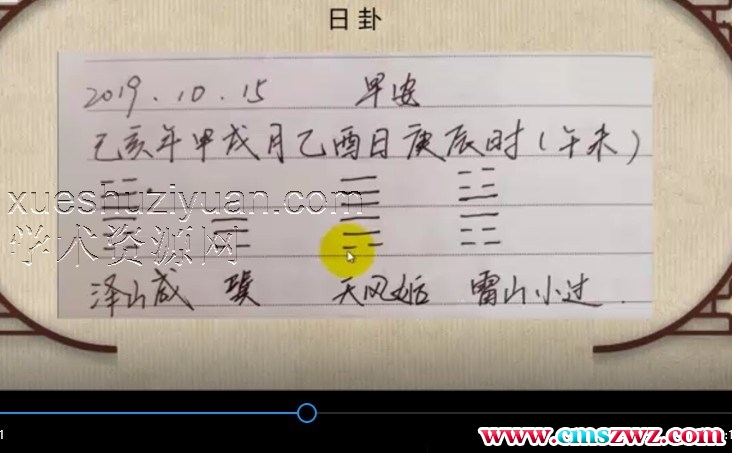 日卦
2019.10.15 早安
己亥年甲戌月乙酉日庚辰时(午未)
xueshuziyuan.com
学术资源网
泽山咸 巽 天风姤 雷山小过.
1
www.cmszwz.com